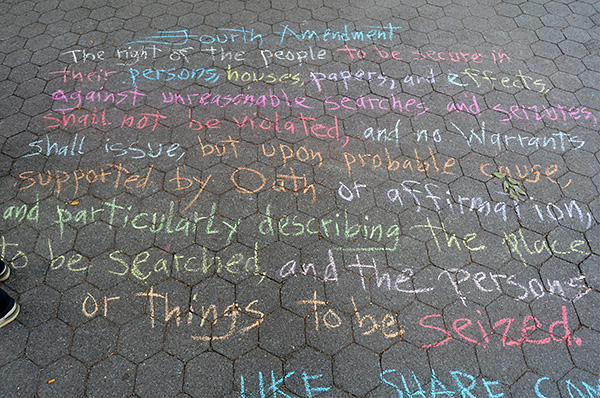 Fourth Amendment
The right of the people to be secure in
their persons, houses, papers, and effects,
against unreasonable searches and seizures,
shall not be violated, and no Warrants
shall issue, but upon probable cause,
supported by Oath or affirmation,
and particularly describing the place
to be searched, and the persons
or things to be seized.
LIKE SHARE COM